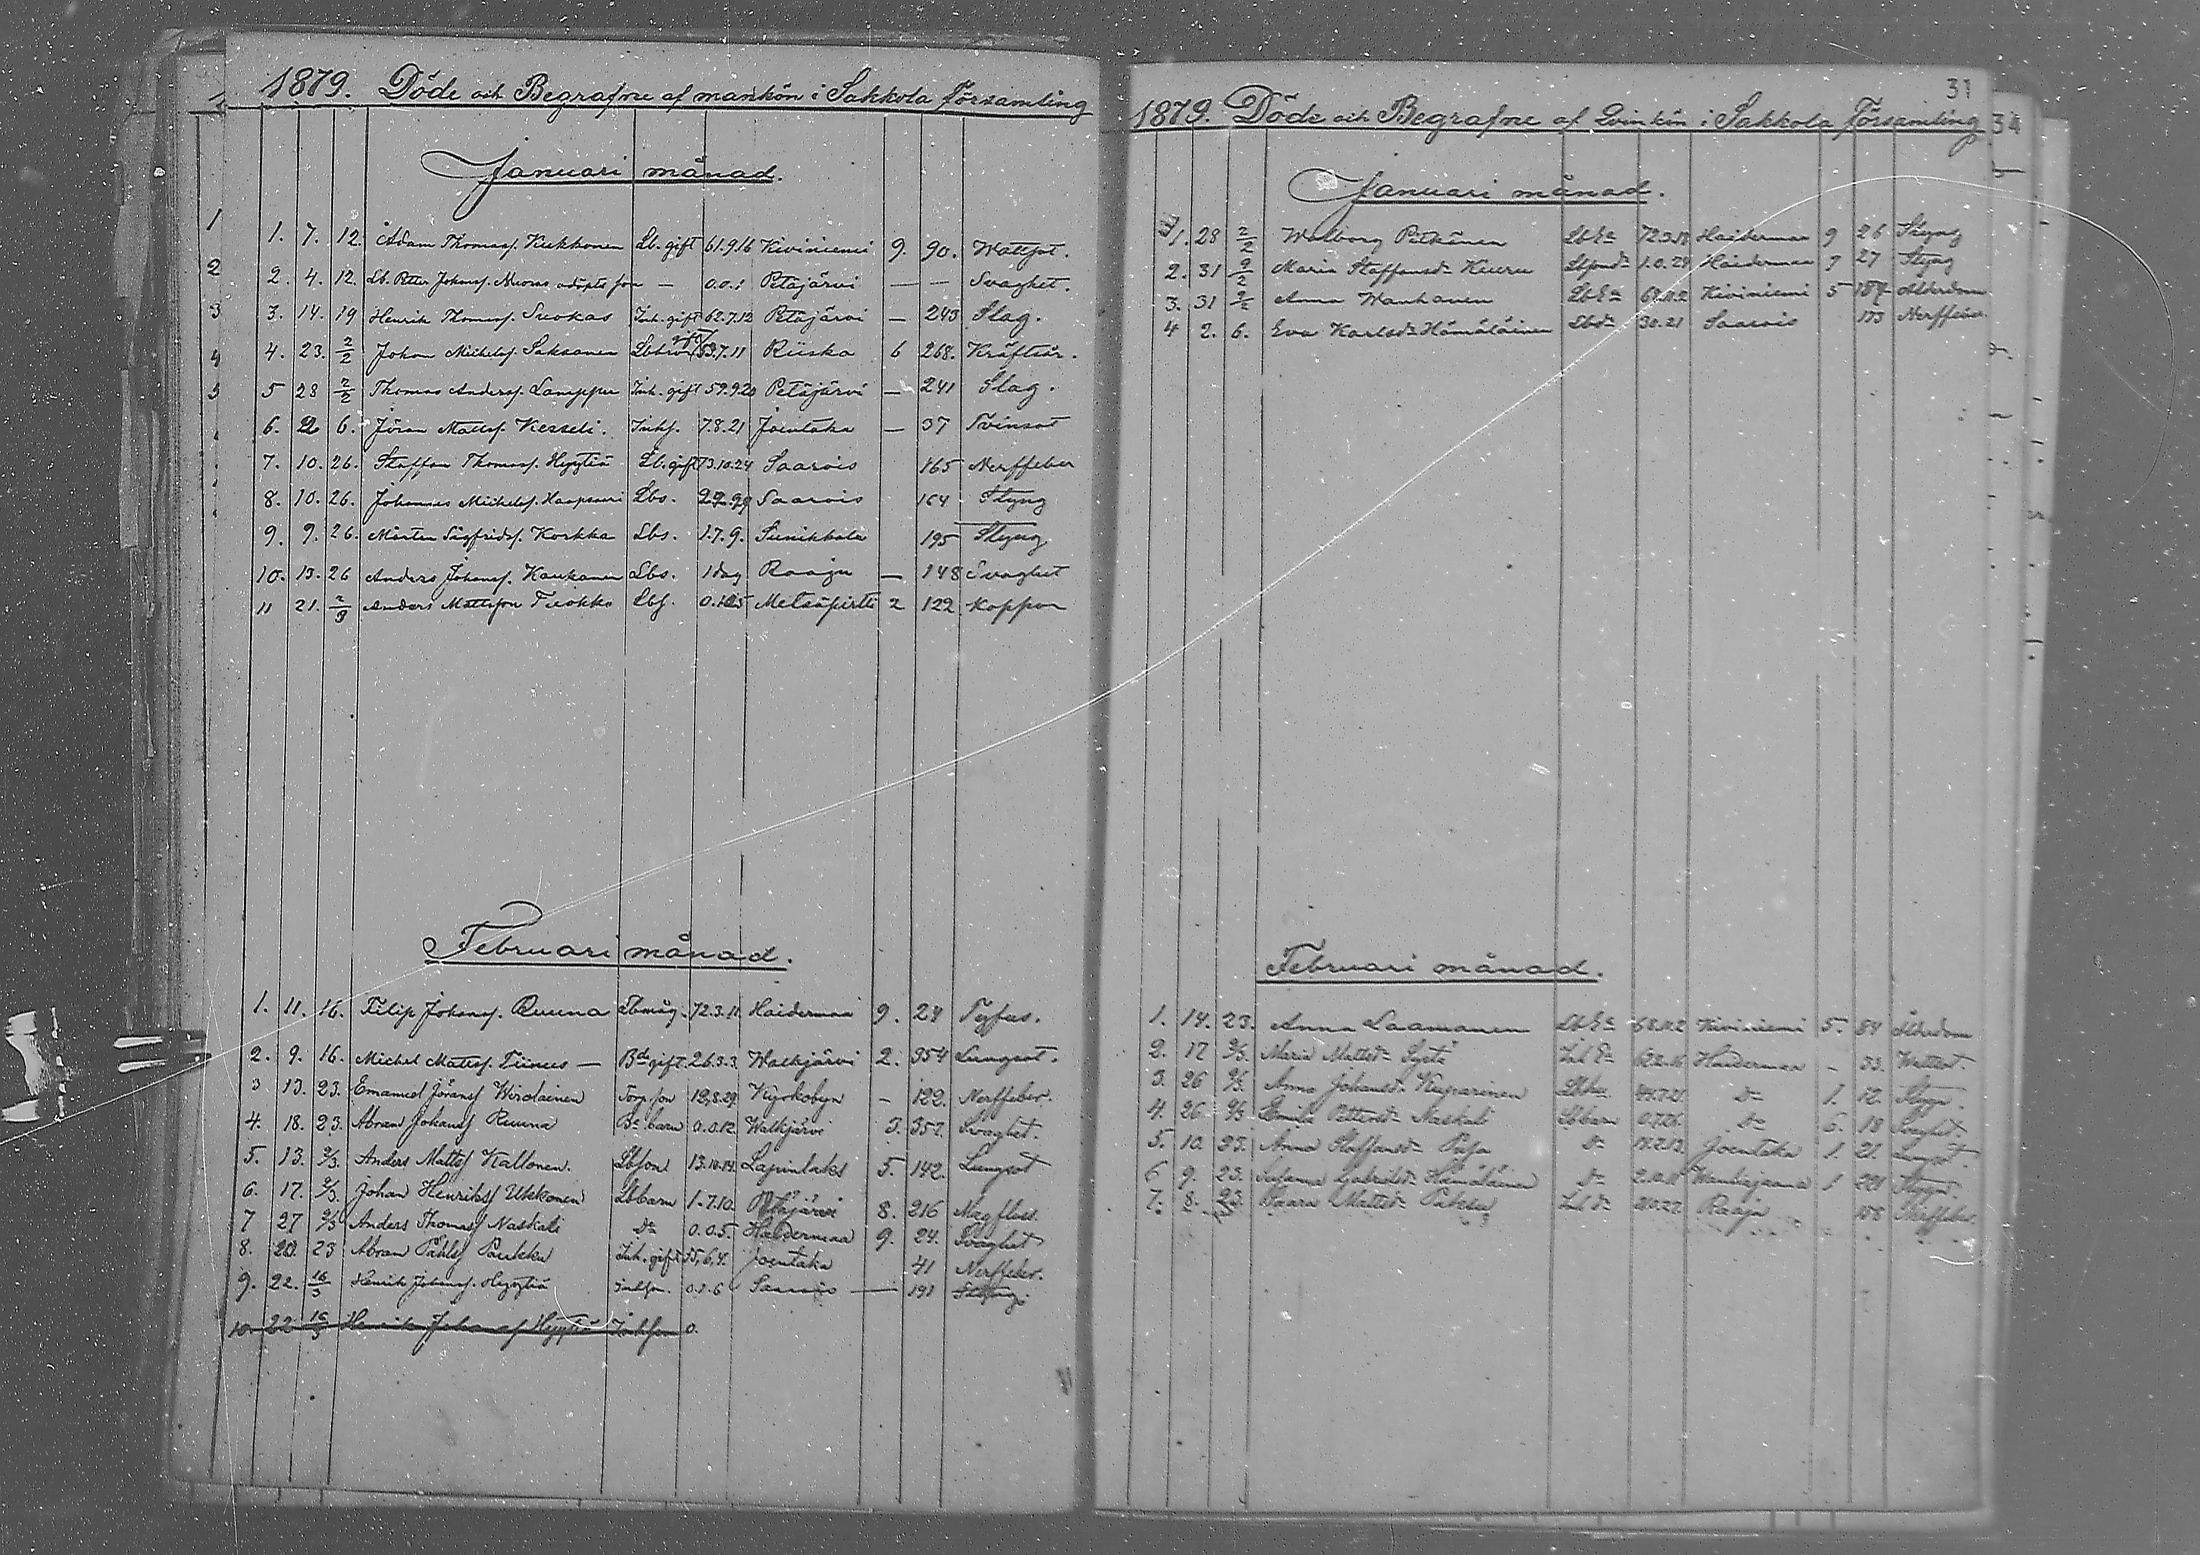 1879. Döde och Begrafne af mankön i Sakkola församling
Januari månad.
1. 7. 12. Adam Thomasf. Kukkonen Lb. gift 61.9.16 Kiviniemi 9. 90. Wattsot.
2. 4. 12. Lb. Petter Johansf. adopts son — 0.0.1 Petäjärvi — — Svaghet.
3. 14. 19 Henrik Thomasf. Suokas Inh. gift 62.7.12 Petäjärvi — 243 Slag.
4. 23. 2/2 Johan Michelsf. Saksanen 53.7.11 Riiska 6 268. Kräftsår.
5 28 2/2 Thomas Andersf. Lamppu Inh. gift 59.9.20 Petäjärvi — 241 Slag.
6. 2 6. Jöran Mattsf. Kesseli. Inhs. 7.8.21 Joentaka — 37 Tvinsot
7. 10. 26. Staffan Thomasf. Hyytiä Lb. gift 73.10.24 Saarois 165 Nerffeber
8. 10. 26. Johannes Michelsf. Haapsaari Lbs. Saarois 164 Styng
9. 9. 26. Mårten Sigfridsf. Korkka Lbs. 1.7.9. Sunikkala 195 Styng
10. 13. 26 Anders Johansf. Kaukanen Lbs. 1 dag Raaju — 148 Svaghet
11 21. 2/3 Anders Mattsson Tuokko Lbs. Metsäpirtti 2 122 Koppor
Februari månad.
1. 11. 16. Filip Johansf. Ruuna Lbmåg. 72.3.11 Haidermaa 9. 24 Tyfus.
2. 9. 16. Michel Mattsf. Tiinus — Bde gift. 26.3.3 Walkjärvi 2. 354 Lungsot.
3 13. 23. Emanuel Jöransf Wirolainen Torp. son 12.8.29. Kyrkobyn — 122. Nerffeber.
4. 18. 23. Abram Johansf Ruuna Be barn 0.0.12. Walkjärvi 3. 357. Svaghet.
5. 13. 2/3. Anders Mattsf Kallonen. Lbson 13.10.14. Lapinlaks 5. 142. Lungsot
6. 17. 2/3. Johan Henriksf Ukkonen Lbbarn 1.7.10. Petäjärvi 8. 216 Magfluss.
7 27 2/3 Anders Thomasf Naskali Do 0.0.5. Haidermaa 9. 24. Svaghet
8. 20. 23 Abram Påhlsf Paukku Inh. gift 55.6.4. Joentaka 41 Nerffeber.
9. 22. 16/3 Henrik Johansf. Hyytiä Inhson. 0.1.6 Saarois — 191 Styng.
10. 22 16/3 Henrik Johansf Hyytiä Inhson 0.
31
1879. Döde och Begrafne af Qvinkön i Sakkola församling
34
Januari månad.
1. 28 2/2 Walborg Pitkänen LbEa 72.3.18 Haidermaa 9 26 Styng
2. 31 2/2 Maria Staffansdr Kuuru 1.0.29 Haidermaa 9 27 Styng
3. 31 2/2 Anna Wanhanen LbEa Kiviniemi 5 Ålderdom
4 2. 6. Eva Karlsdr Hämäläinen Lbdr 30.21 Saarois 153 Nerffeber
Februari månad.
1. 14. 23. Anna Laamanen LbEa Kiviniemi 5. 84 Ålderdom
2. 17 2/3. Maria Mattsdr Haidermaa — 33. Wattsot.
3. 26 2/3. Anna Johansdr Kuparinen Do 1. 12. Styng.
4. 26 2/3 Emila Pettersdr Naskali Lbbarn 0.7.26. Do 6. 18 Svaghet.
5. 10. 23. Anna Staffansdr Do Joentaka 1 21. Lungsot.
6 9. 23. Susanna Gabrielsdr Hämäläinen Do 2.10.11 1 221 Styng.
7. 8. 23. Kaarin Mattsdr Raaju 158 Nerffeber.